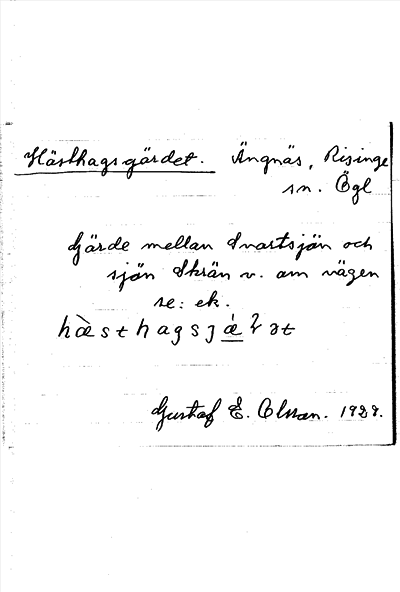 Hästhagsgärdet. Ängnäs, Risinge
sn. Ögl
Gärde mellan Svartsjön och
sjön Skrän v. om vägen
se: ek.
hæ̀sthagsjǽɂət
Gustaf E. Olsson. 1929.